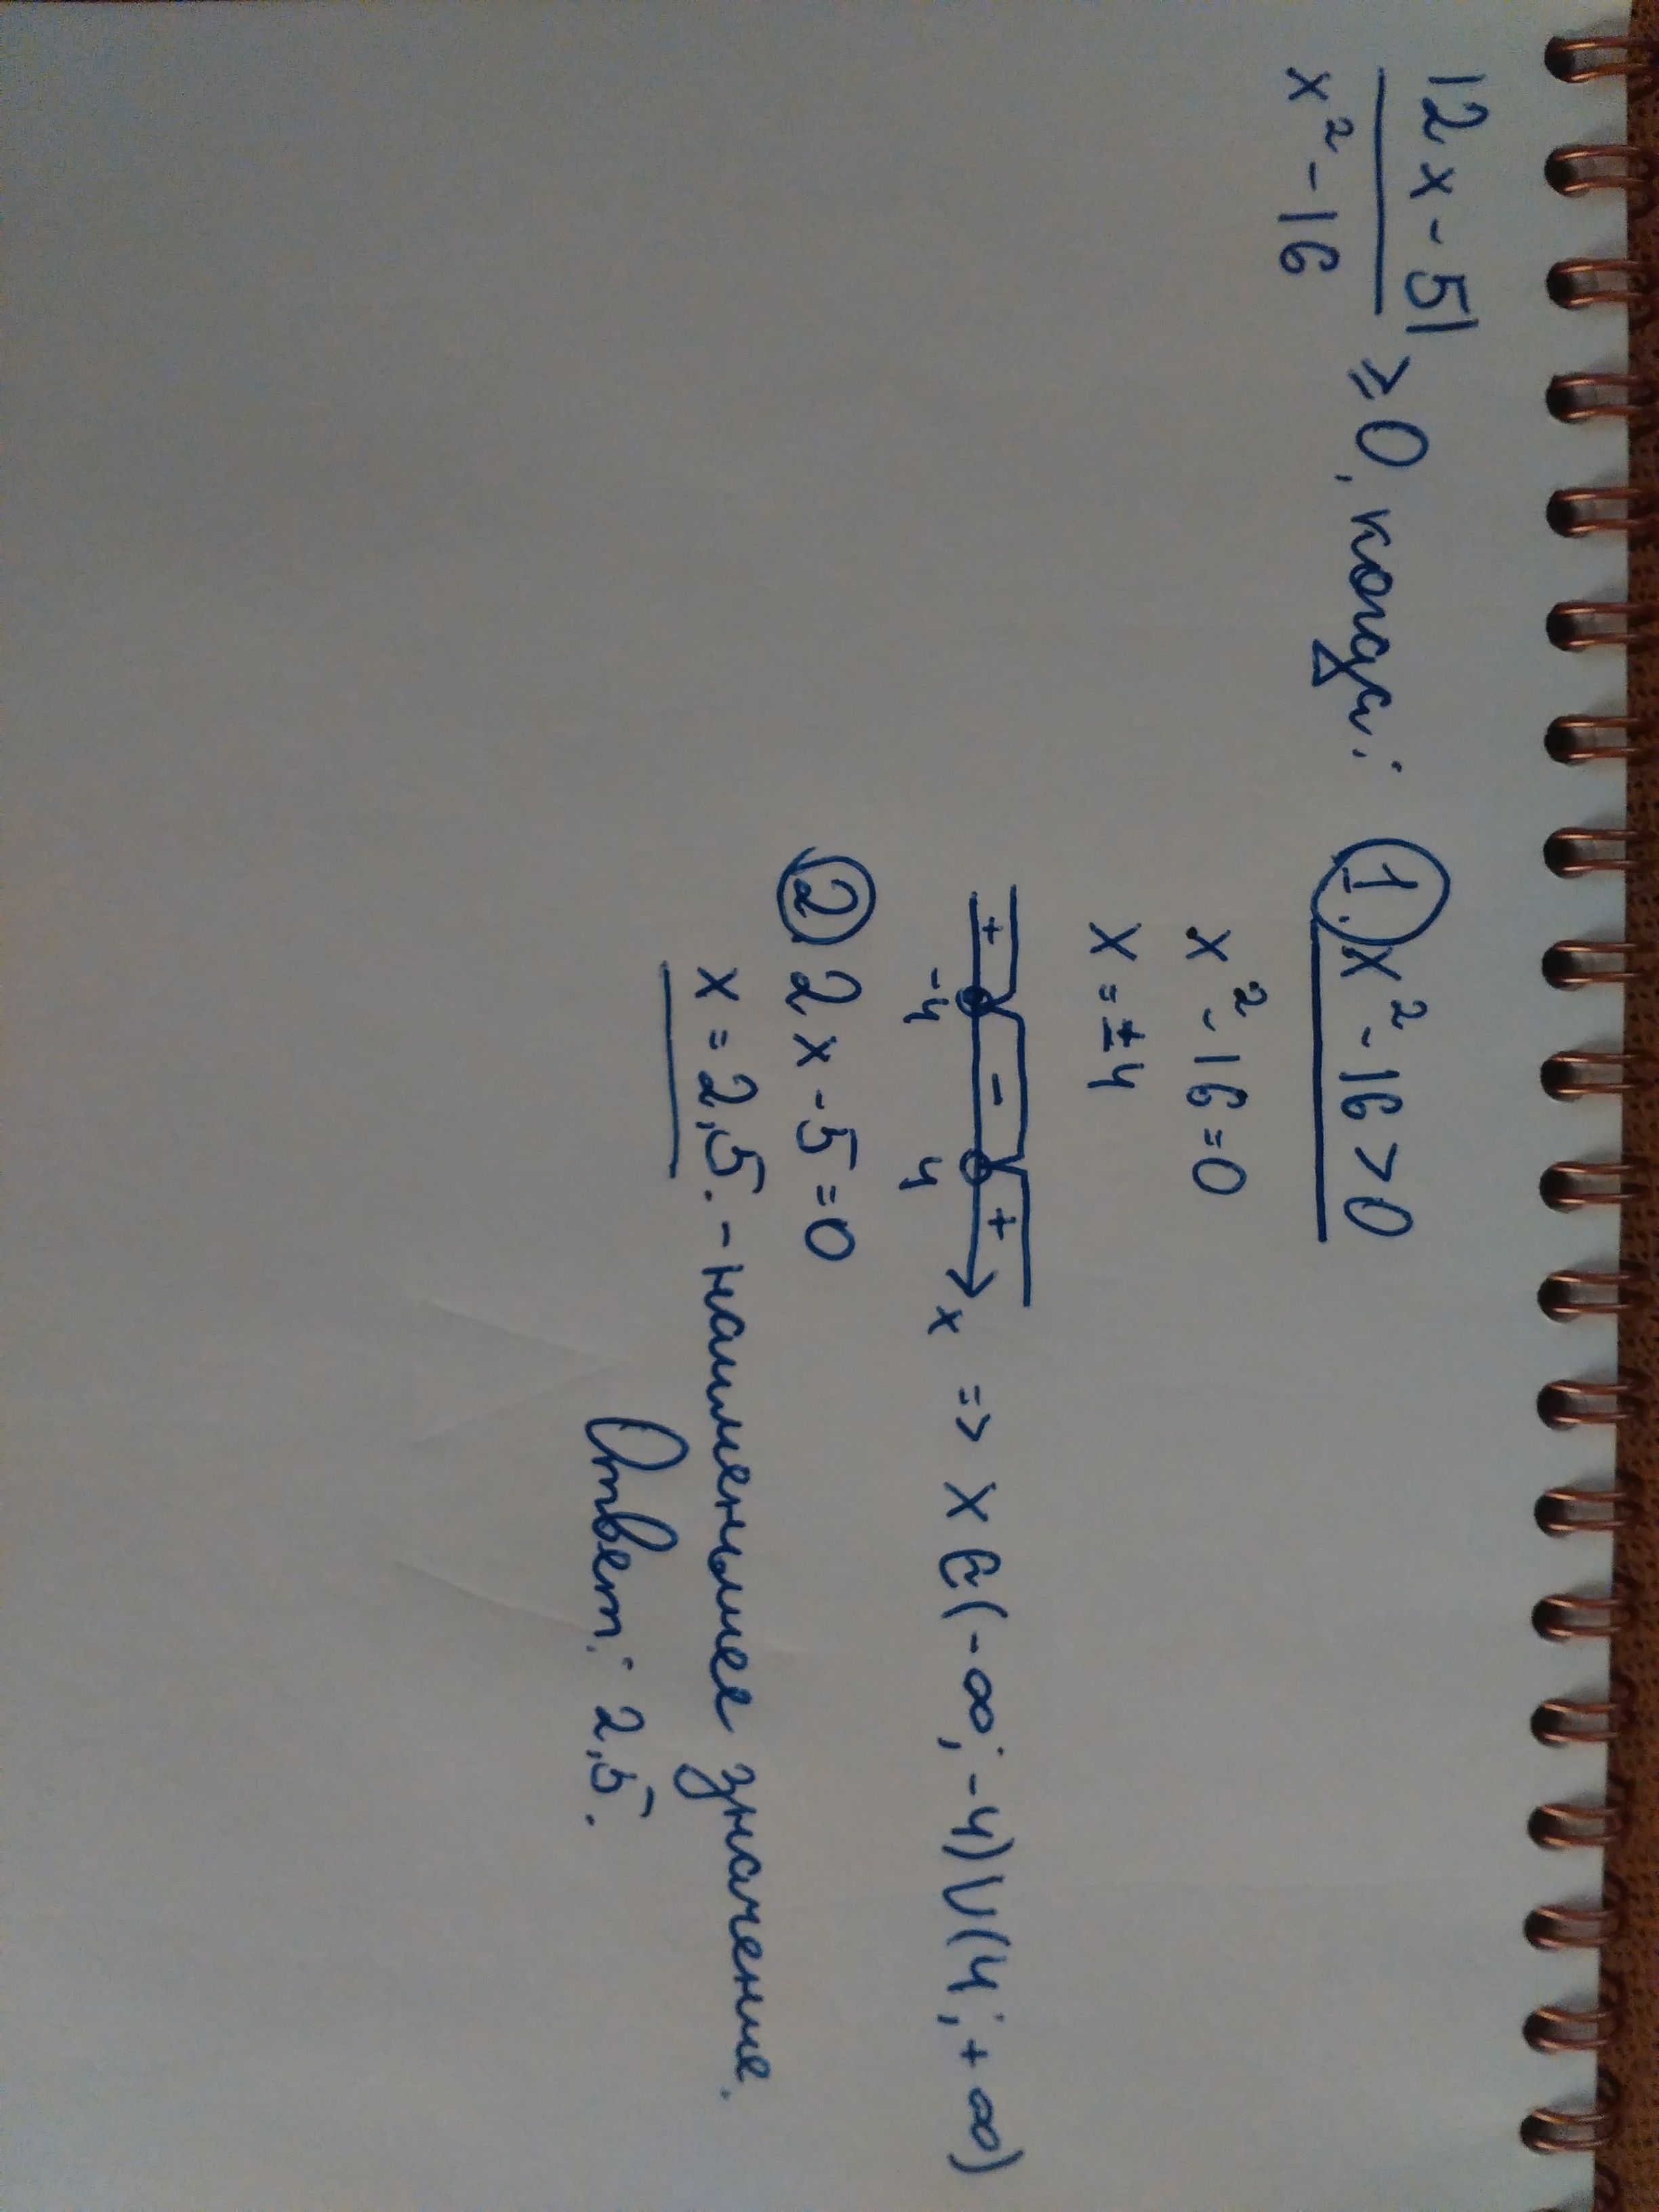 |2x-5|
x²-16 ≥0, когда: ①. x²-16>0
x²-16=0
x=±4
+ - +
-4 4 x => x∈(-∞;-4)∪(4;+∞)
② 2x-5=0
x=2,5. - наименьшее значение.
Ответ: 2,5.